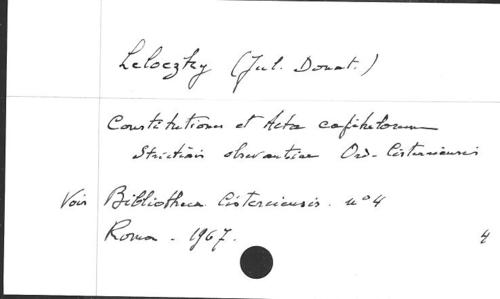 Leloczky (Jul. Donat.)
Constitutiones et Acta capitulorum
Strictioris observantiae Ord. Cisterciensis
Voir Bibliotheca Cisterciensis. n° 4
Roma. 1967.
4